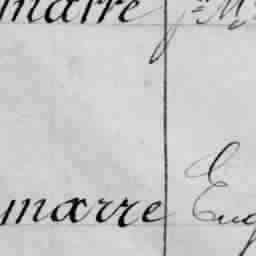 marre
marre Eug